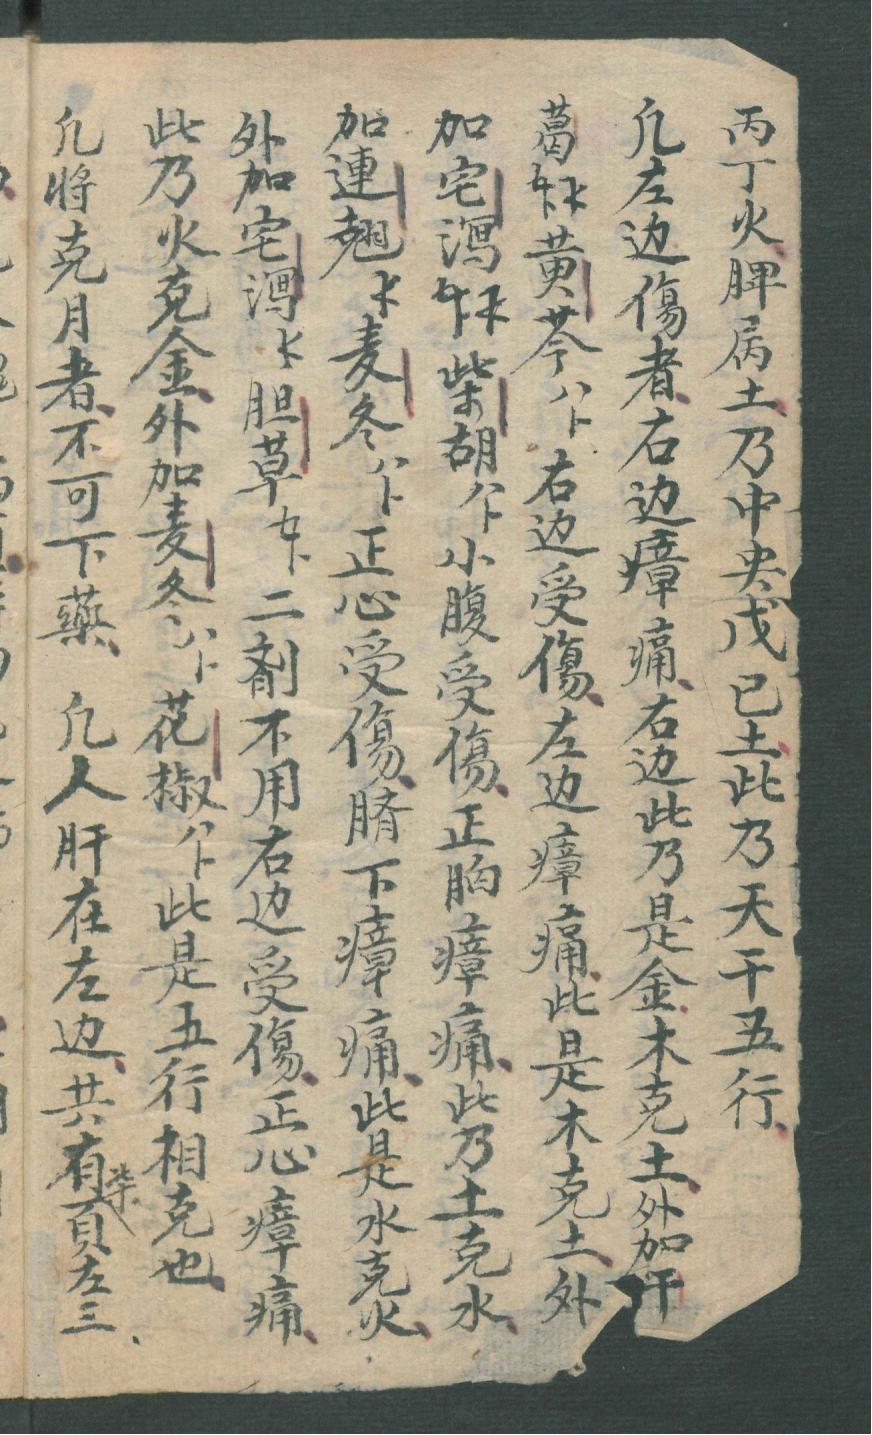 丙丁火脾属土乃中央戊己土此乃天干五行
凡左边傷者右边瘴痛右边此乃是金木克土外加干
葛黄芩八卜右边受傷左边瘴痛此是木克土外
加宅瀉柴胡八卜小腹受傷正胸瘴痛此乃土克水
加連翹麦冬八卜正心受傷臍下瘴痛此是水克火
外加宅瀉胆草二剤不用右边受傷正心瘴痛
此乃火克金外加麦冬八卜花椒八卜此是五行相克也
凡将克月者不可下藥 凡人肝在左边共有柒頁左三